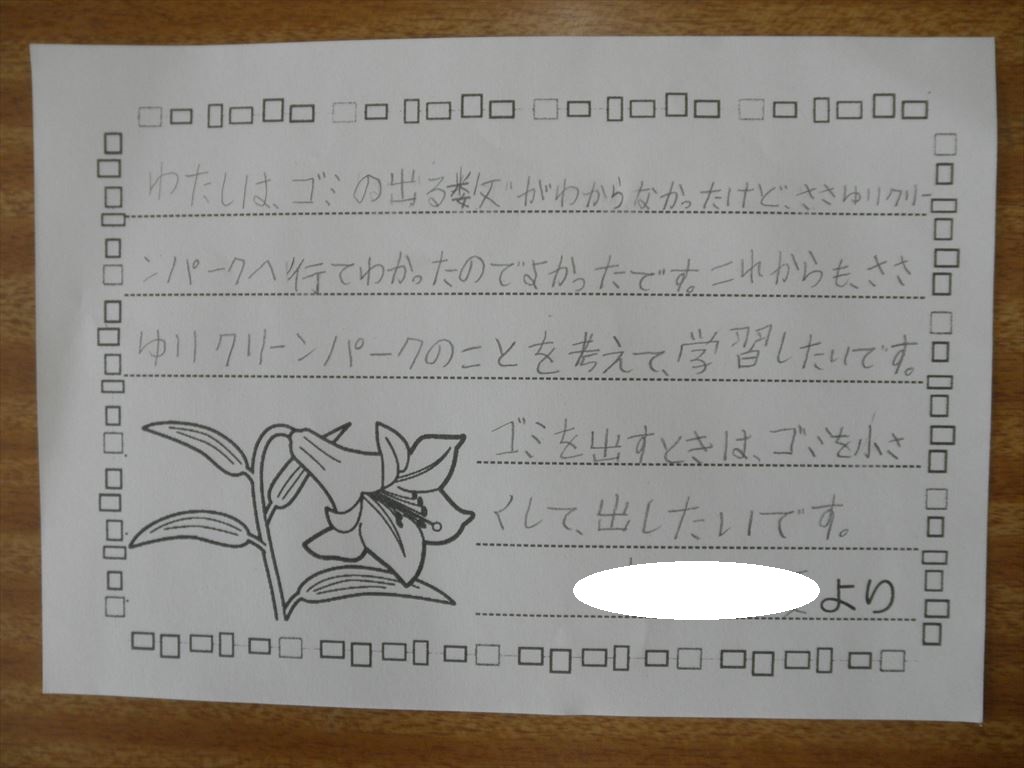 わたしは、ゴミの出る数がわからなかったけど、ささゆりクリー
ンパークへ行てわかったのでよかったです。これからも、ささ
ゆりクリーンパークのことを考えて、学習したいです。
ゴミを出すときは、ゴミを小さ
くして、出したいです。
より